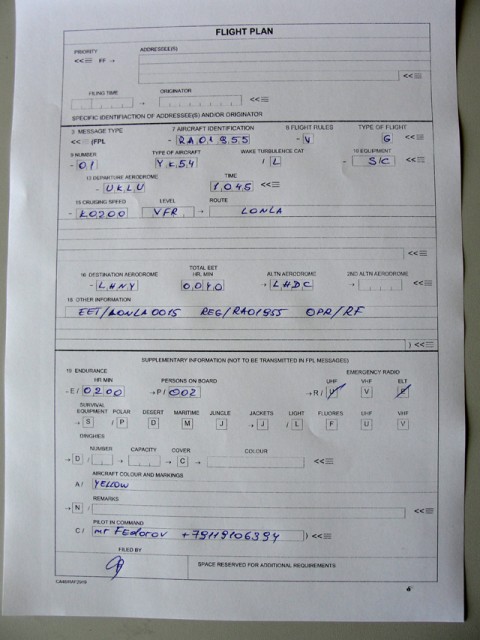 FLIGHT PLAN
PRIORITY ADDRESSEE(S)
<<≡ FF →
<<≡
FILING TIME ORIGINATOR
→ <<≡
SPECIFIC IDENTIFIACTION OF ADDRESSEE(S) AND/OR ORIGINATOR
3 MESSAGE TYPE 7 AIRCRAFT IDENTIFICATION 8 FLIGHT RULES TYPE OF FLIGHT
<<≡ (FPL - RA01955 - V G <<≡
9 NUMBER TYPE OF AIRCRAFT WAKE TURBULENCE CAT 10 EQUIPMENT
- 01 YK54 / L - S/C <<≡
13 DEPARTURE AERODROME TIME
- UKLU 1045 <<≡
15 CRUISING SPEED LEVEL ROUTE
- K0200 VFR → LONLA
<<≡
16 DESTINATION AERODROME TOTAL EET HR. MIN ALTN AERODROME 2ND ALTN AERODROME
- LHNY 0040 → LHDC → <<≡
18 OTHER INFORMATION
EET/LONLA0015 REG/RA01955 OPR/RF
) <<≡
SUPPLEMENTARY INFORMATION (NOT TO BE TRANSMITTED IN FPL MESSAGES)
19 ENDURANCE EMERGENCY RADIO
HR.MIN PERSONS ON BOARD UHF VHF ELT
- E / 0200 → P / 002 → R / U V E
SURVIVAL
EQUIPMENT POLAR DESERT MARITIME JUNGLE JACKETS LIGHT FLUORES UHF VHF
→ S / P D M J → J / L F U V
DINGHIES
NUMBER CAPACITY COVER COLOUR
→ D / → → C → <<≡
AIRCRAFT COLOUR AND MARKINGS
A / YELLOW
REMARKS
→ N / <<≡
PILOT IN COMMAND
C / mr Fedorov +79119106394 ) <<≡
FILED BY
SPACE RESERVED FOR ADDITIONAL REQUIREMENTS